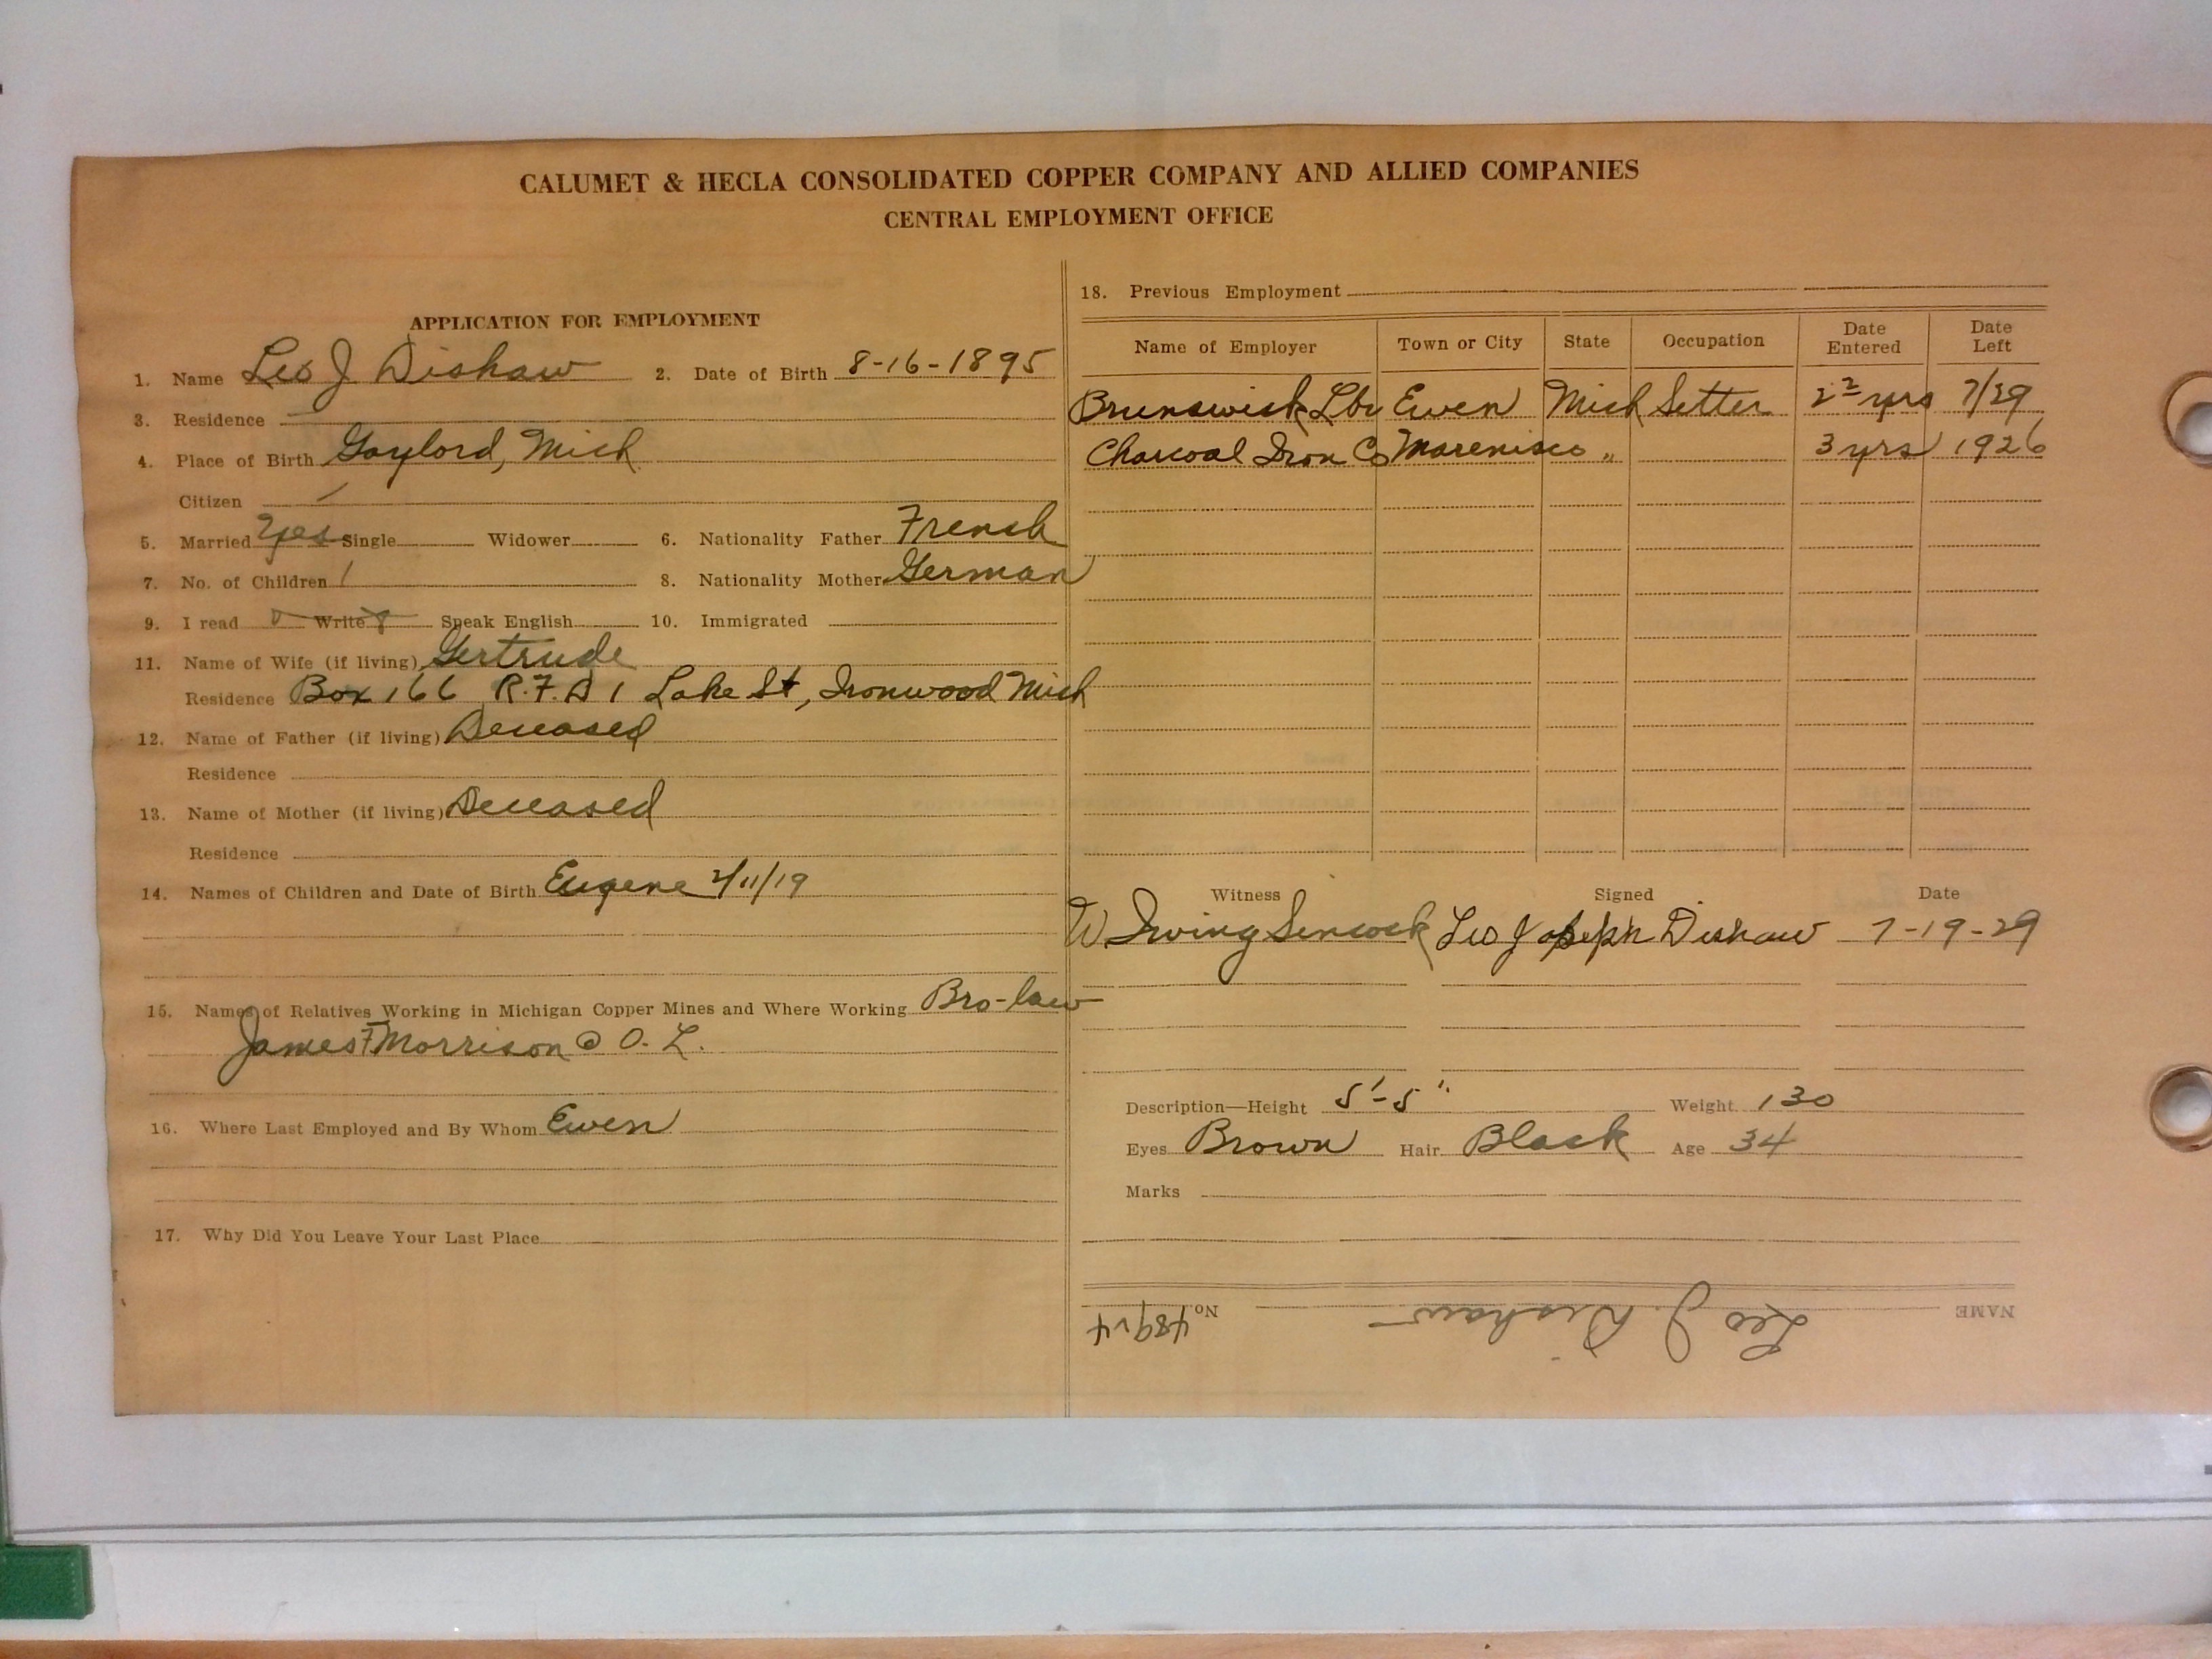 CALUMET & HECLA CONSOLIDATED COPPER COMPANY AND ALLIED COMPANIES
CENTRAL EMPLOYMENT OFFICE
APPLICATION FOR EMPLOYMENT
1. Name Leo J Dishaw 2. Date of Birth 8-16-1895
3. Residence
4. Place of Birth Gaylord, Mich
Citizen
5. Married Yes Single Widower 6. Nationality Father French
7. No. of Children 1 8. Nationality Mother German
9. I read Write Speak English 10. Immigrated
11. Name of Wife (if living) Gertrude
Residence Box 166 R.F.D 1 Lake St, Ironwood Mich
12. Name of Father (if living) Deceased
Residence
13. Name of Mother (if living) Deceased
Residence
14. Names of Children and Date of Birth Eugene 2/11/19
15. Names of Relatives Working in Michigan Copper Mines and Where Working Bro-law
James F Morrison @ O. L.
16. Where Last Employed and By Whom Ewen
17. Why Did You Leave Your Last Place
18. Previous Employment
Name of Employer Town or City State Occupation Date Entered Date Left
Brunswick Lbr Ewen Mich Setter yrs 7/29
Charcoal Iron Co Marenisco " 3 yrs 1926
Witness Signed Date
W Irving Sincock Leo Joseph Dishaw 7-19-29
Description—Height 5'-5" Weight 130
Eyes Brown Hair Black Age 34
Marks
NAME Leo J. Dishaw No. 48914